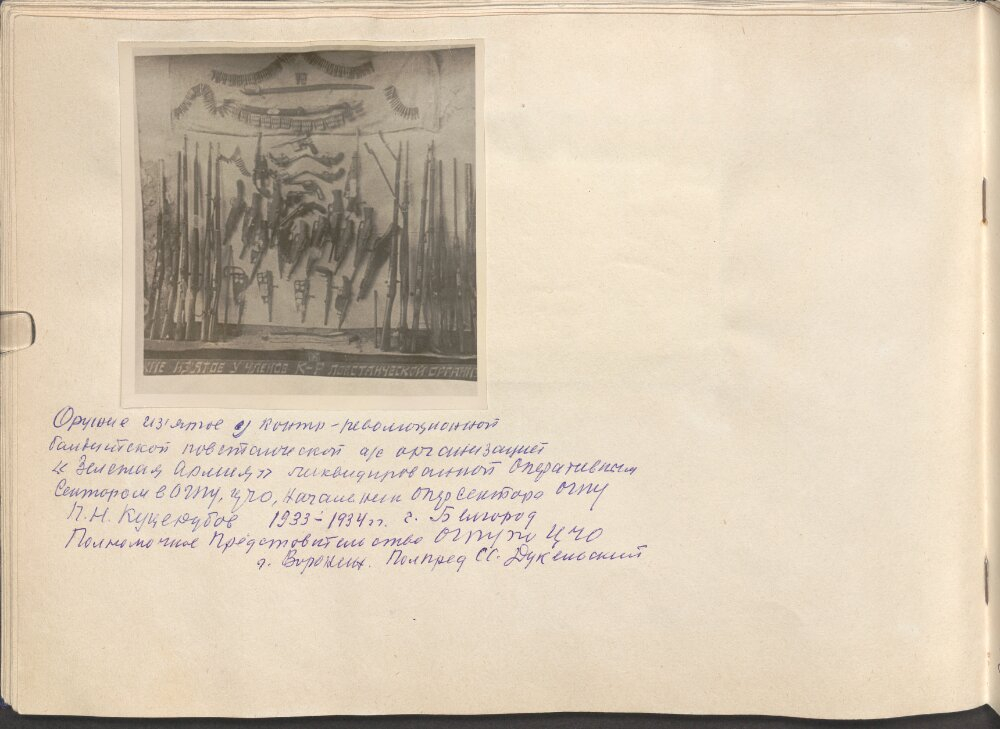 ЖИЕ ИЗЯТОЕ У ЧЛЕНОВ К-Р ПОВСТАНЧЕСКОЙ ОРГАНИ
Оружие из'ятое у контр-революционной
бандитской повстанческой а/с организацией
"Зеленая Армия" ликвидированной Оперативным
Сектором в ОГПУ, ЦЧО, Начальник опер сектора ОГПУ
П.Н. Куцеюубов 1933-1934 гг. г. Белгород
Полномочное Представительство ОГПУ по ЦЧО
г. Воронеж. Полпред СС. Дукельский